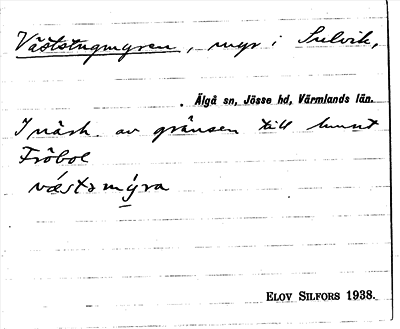 Väststugmyren, myr i Sulvik,
Älgå sn, Jösse hd, Värmlands län.
I närh. av gränsen till hemmet
Fröbol
væ̀stsmýra
ELOV SILFORS 1938.